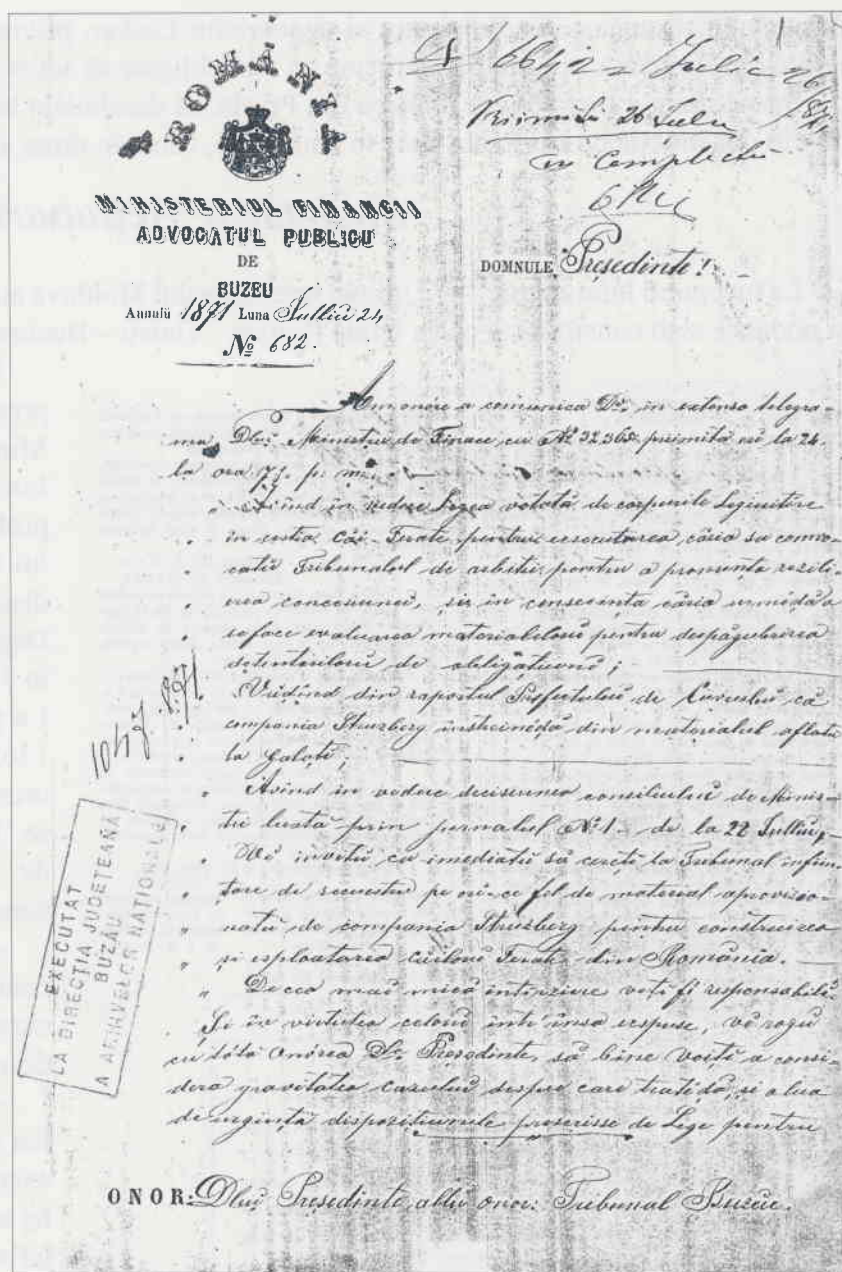 ROMÂNIA
MINISTERIUL FINANCII
ADVOCATUL PUBLICU
DE
BUZEU
Annulŭ 1871 Luna Iulliu 24
№ 682.
6642 Iulie 26
26 Iuliu
in
DOMNULE Președinte!
Am onore a comunica Dv. in extenso telegra-
ma Dlui Ministru de Finace cu № 32,368 primită la 24
la ora 7½ p. m.
in vedere Legea votată de corpurile Legiuitore
in cestia Căi-Ferate pentru esecutarea căria
Tribunalul de arbitri pentru a pronunța rezili-
erea concesiunei, și in consecința căria urmédă a
se face evaluarea materialelorŭ pentru despăgubirea
detentorilorŭ de obligațiuni;
Vedînd din raportul Prefectului de Covurluĭ că
compania Strusberg instreinédă din materialul aflatŭ
la Galați;
Avînd in vedere decisiunea consiliului de Minis-
tri luată prin jurnalul № 1 de la 22 Iulliu,
Vĕ invitŭ ca imediatŭ să cereți la Tribunal infiin-
țare de secuestru pe ori-ce fel de material aprovisio-
natŭ de compania Strusberg pentru construirea
și esploatarea căilorŭ Ferate din România.
De cea mai mică intîrziere veți fi responsabili.
Și în virtutea celorŭ, vĕ rogŭ
cu tótă onórea Dle Președinte, să bine voiți a consi-
dera gravitatea casului despre care tratédă, și a lua
de urgință dispozițiunele prescrisse de Lege pentru
ONOR: Dlui Președinte allŭ onor: Tribunal Buzeu.
1047. 871
EXECUTAT
LA DIRECȚIA JUDEȚEANĂ
BUZĂU
A ARHIVELOR NAȚIONALE